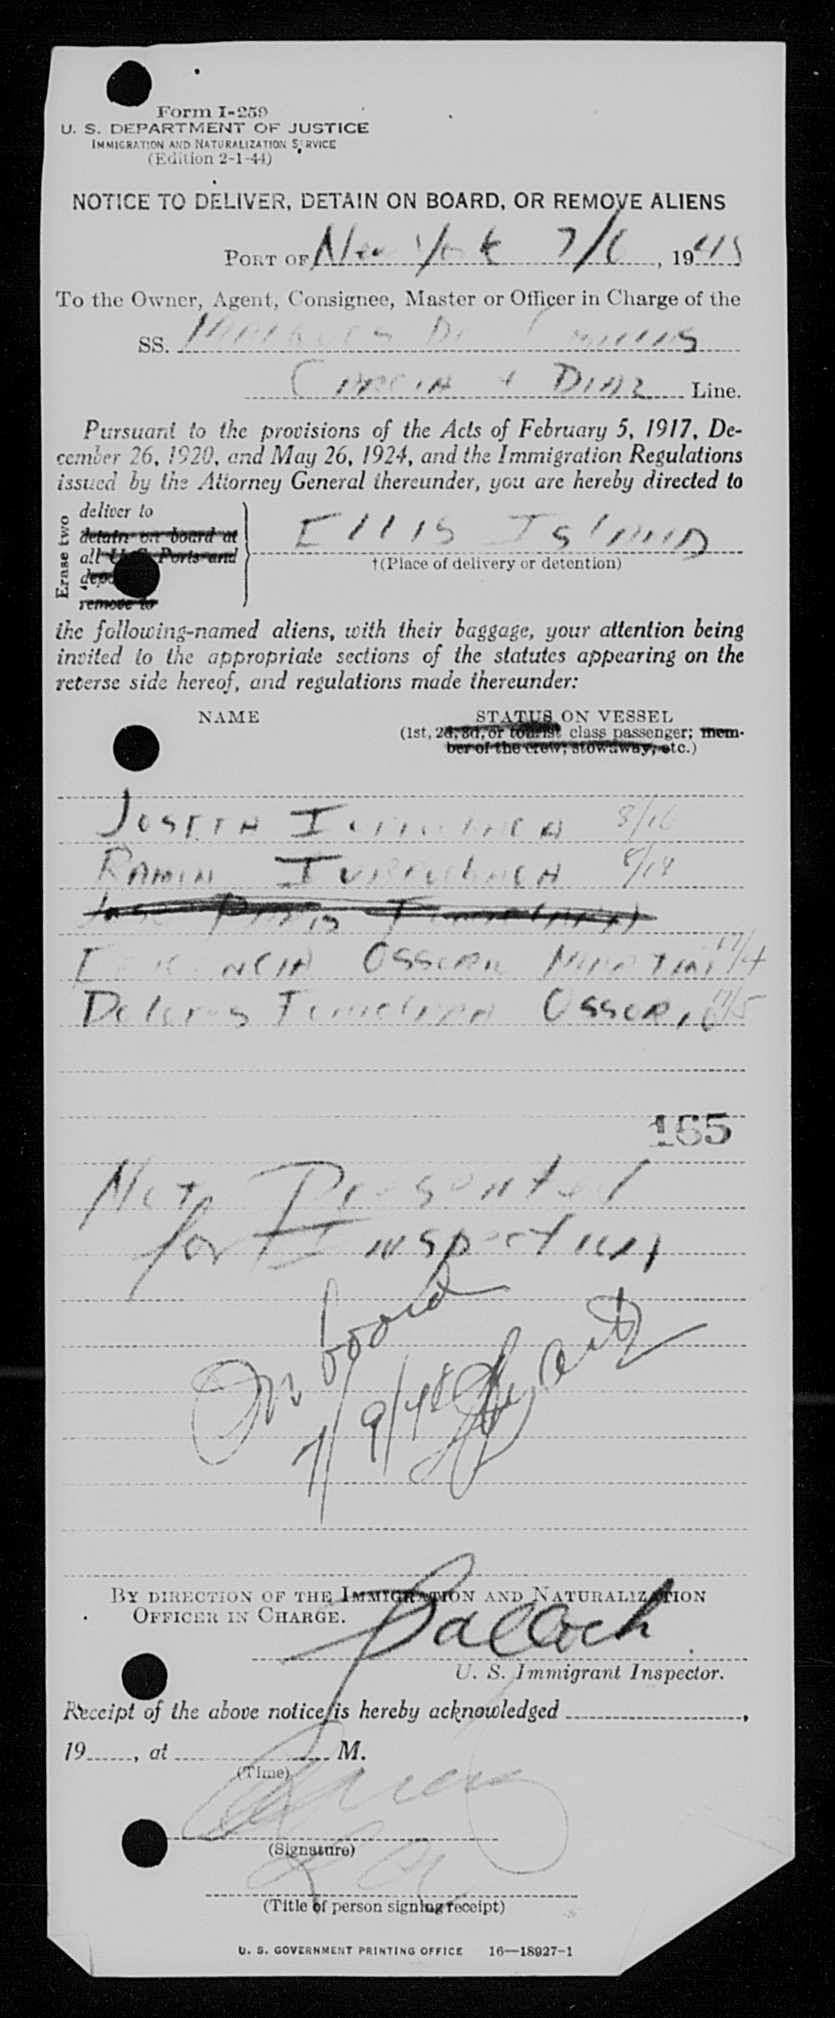 Form I-259
U. S. DEPARTMENT OF JUSTICE
IMMIGRATION AND NATURALIZATION SERVICE
(Edition 2-1-44)
NOTICE TO DELIVER, DETAIN ON BOARD, OR REMOVE ALIENS
PORT OF New York 7/6, 1945
To the Owner, Agent, Consignee, Master or Officer in Charge of the
SS.
GARCIA & DIAZ Line.
Pursuant to the provisions of the Acts of February 5, 1917, De-
cember 26, 1920, and May 26, 1924, and the Immigration Regulations
issued by the Attorney General thereunder, you are hereby directed to
Erase two
deliver to
detain on board at
all U. S. Ports and
remove to
ELLIS ISLAND
†(Place of delivery or detention)
the following-named aliens, with their baggage, your attention being
invited to the appropriate sections of the statutes appearing on the
reverse side hereof, and regulations made thereunder:
NAME
STATUS ON VESSEL
(1st, 2d, 3d, or tourist class passenger; mem-
ber of the crew; stowaway, etc.)
JOSEFA 8/16
RAMON 8/18
OSSORIO 11/4
DOLORES OSSORIO 11/5
165
Not Presented
for Inspection
On board
7/9/45
BY DIRECTION OF THE IMMIGRATION AND NATURALIZATION
OFFICER IN CHARGE.
U. S. Immigrant Inspector.
Receipt of the above notice is hereby acknowledged ,
19 , at M.
(Time)
(Signature)
(Title of person signing receipt)
U. S. GOVERNMENT PRINTING OFFICE 16—18927-1